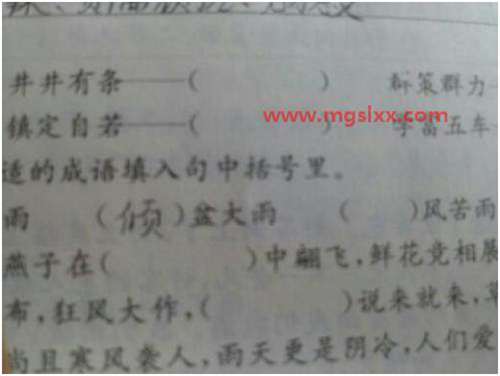 井井有条——( ) 群策群力—
www.mgslxx.com
镇定自若——( ) 学富五车
适的成语填入句中括号里。
雨 (倾)盆大雨 ( )风苦雨
燕子在( )中翩飞,鲜花竞相展
布,狂风大作,( )说来就来,草
尚且寒风袭人,雨天更是阴冷,人们爱